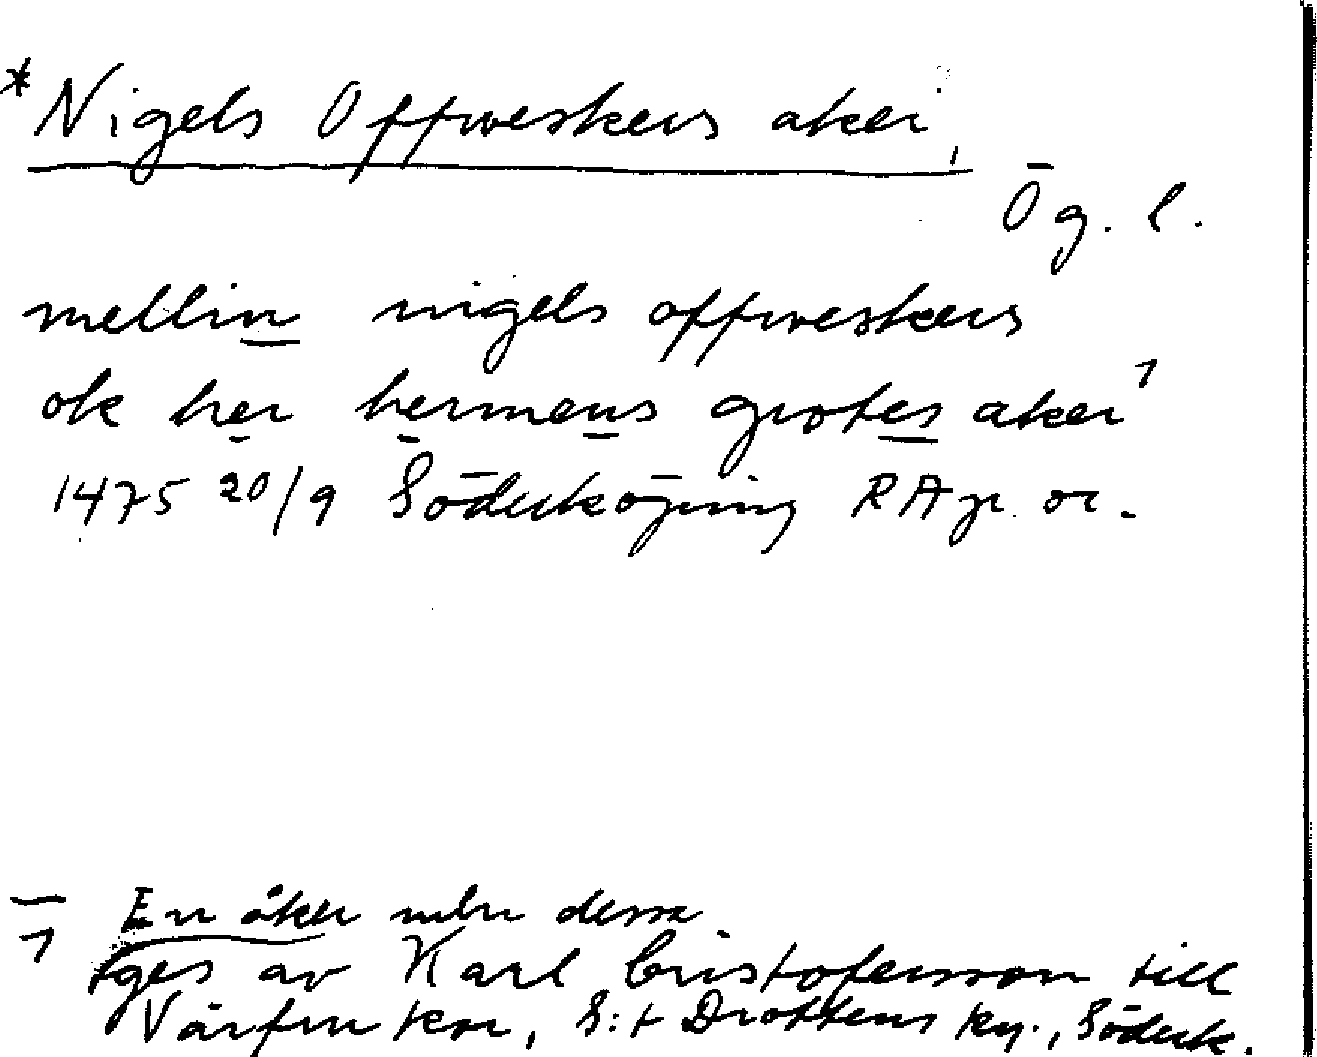 *Nigels Offweskers aker,
Ög. l.
mellin nigels offweskers
ok her hermens grotes aker 1
1475 20/9 Söderköping RAp. or.
1 En åker mln dessa
ges av Karl Cristofersson till
Vårfru kor, S:t Drottens ky., Söderk.